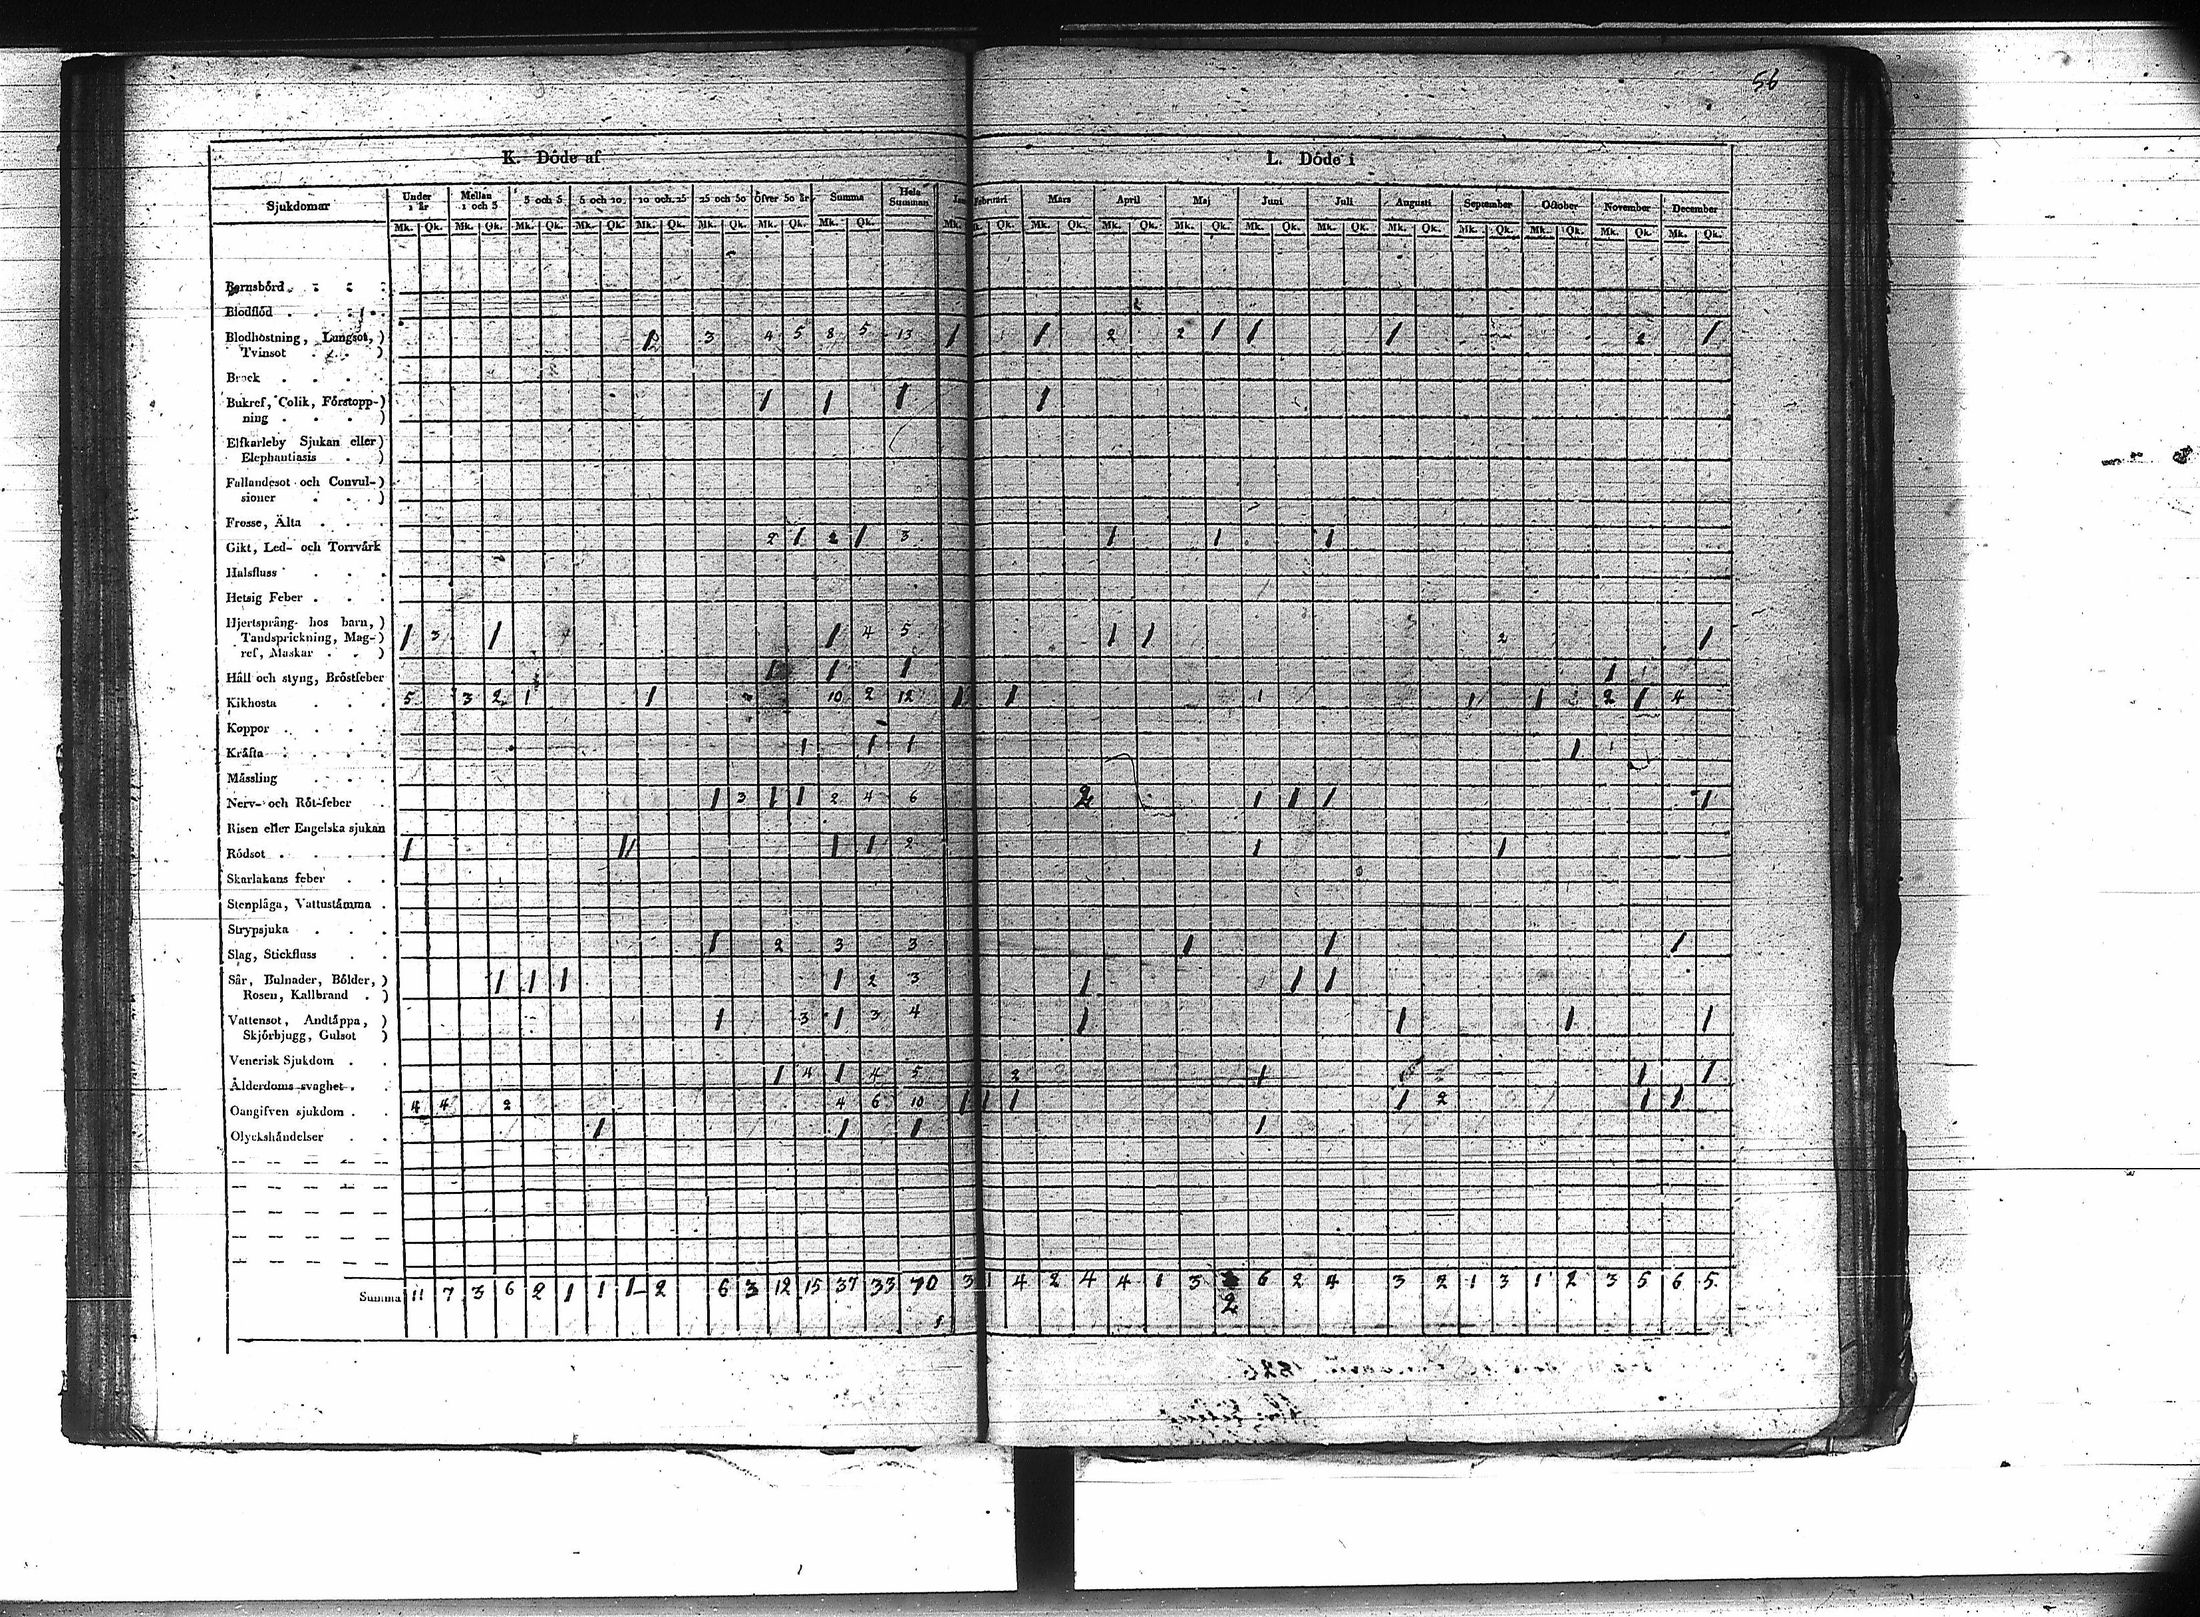 56
K. Döde af
L. Döde i
Sjukdomar Under 1 år Mellan 1 och 3 3 och 5 5 och 10 10 och 25 25 och 50 Öfver 50 år Summa Hela Summan Februari Mars April Maj Juni Juli Augusti September October November December
Mk. Qk. Mk. Qk. Mk. Qk. Mk. Qk. Mk. Qk. Mk. Qk. Mk. Qk. Mk. Qk. Mk. Qk. Mk. Qk. Mk. Qk. Mk. Qk. Mk. Qk. Mk. Qk. Mk. Qk. Mk. Qk. Mk. Qk. Mk. Qk. Mk. Qk. Mk. Qk.
Barnsbörd
Blodflöd
Blodhostning, Lungsot, ) 3 4 5 8 5 13 1 1 2 2 1 1 1 2 1
Tvinsot )
Brock
Bukref, Colik, Förstopp-) 1 1 1 1
ning )
Elfkarleby Sjukan eller)
Elephantiasis )
Fallandesot och Convul-)
sioner )
Frosse, Älta
Gikt, Led- och Torrvärk 2 1 2 1 3 1 1 1
Halsfluss
Hetsig Feber
Hjertsprång hos barn, )
Tandsprickning, Mag-) 1 3 1 1 4 5 1 1 2 1
ref, Maskar )
Håll och styng, Bröstfeber 1 1 1 1
Kikhosta 5 3 2 1 1 10 2 12 1 1 1 1 1 2 1 4
Koppor
Kräfta 1 1 1 1
Mässling
Nerv- och Röt-feber 1 3 1 1 2 4 6 2 1 1 1 1
Risen eller Engelska sjukan
Rödsot 1 1 1 1 2 1 1
Skarlakans feber
Stenplåga, Vattustämma
Strypsjuka
Slag, Stickfluss 1 2 3 3 1 1 1
Sår, Bulnader, Bölder, ) 1 1 1 1 2 3 1 1 1
Rosen, Kallbrand )
Vattensot, Andtäppa, ) 1 3 1 3 4 1 1 1 1
Skjörbjugg, Gulsot )
Venerisk Sjukdom
Ålderdoms svaghet 1 4 1 4 5 2 1 1 1
Oangifven sjukdom 4 4 2 4 6 10 1 1 1 1 2 1 1
Olyckshändelser 1 1 1 1
Summa 11 7 3 6 2 1 1 1 2 6 3 12 15 37 33 70 3 1 4 2 4 4 1 3 2 6 2 4 3 2 1 3 1 2 3 5 6 5